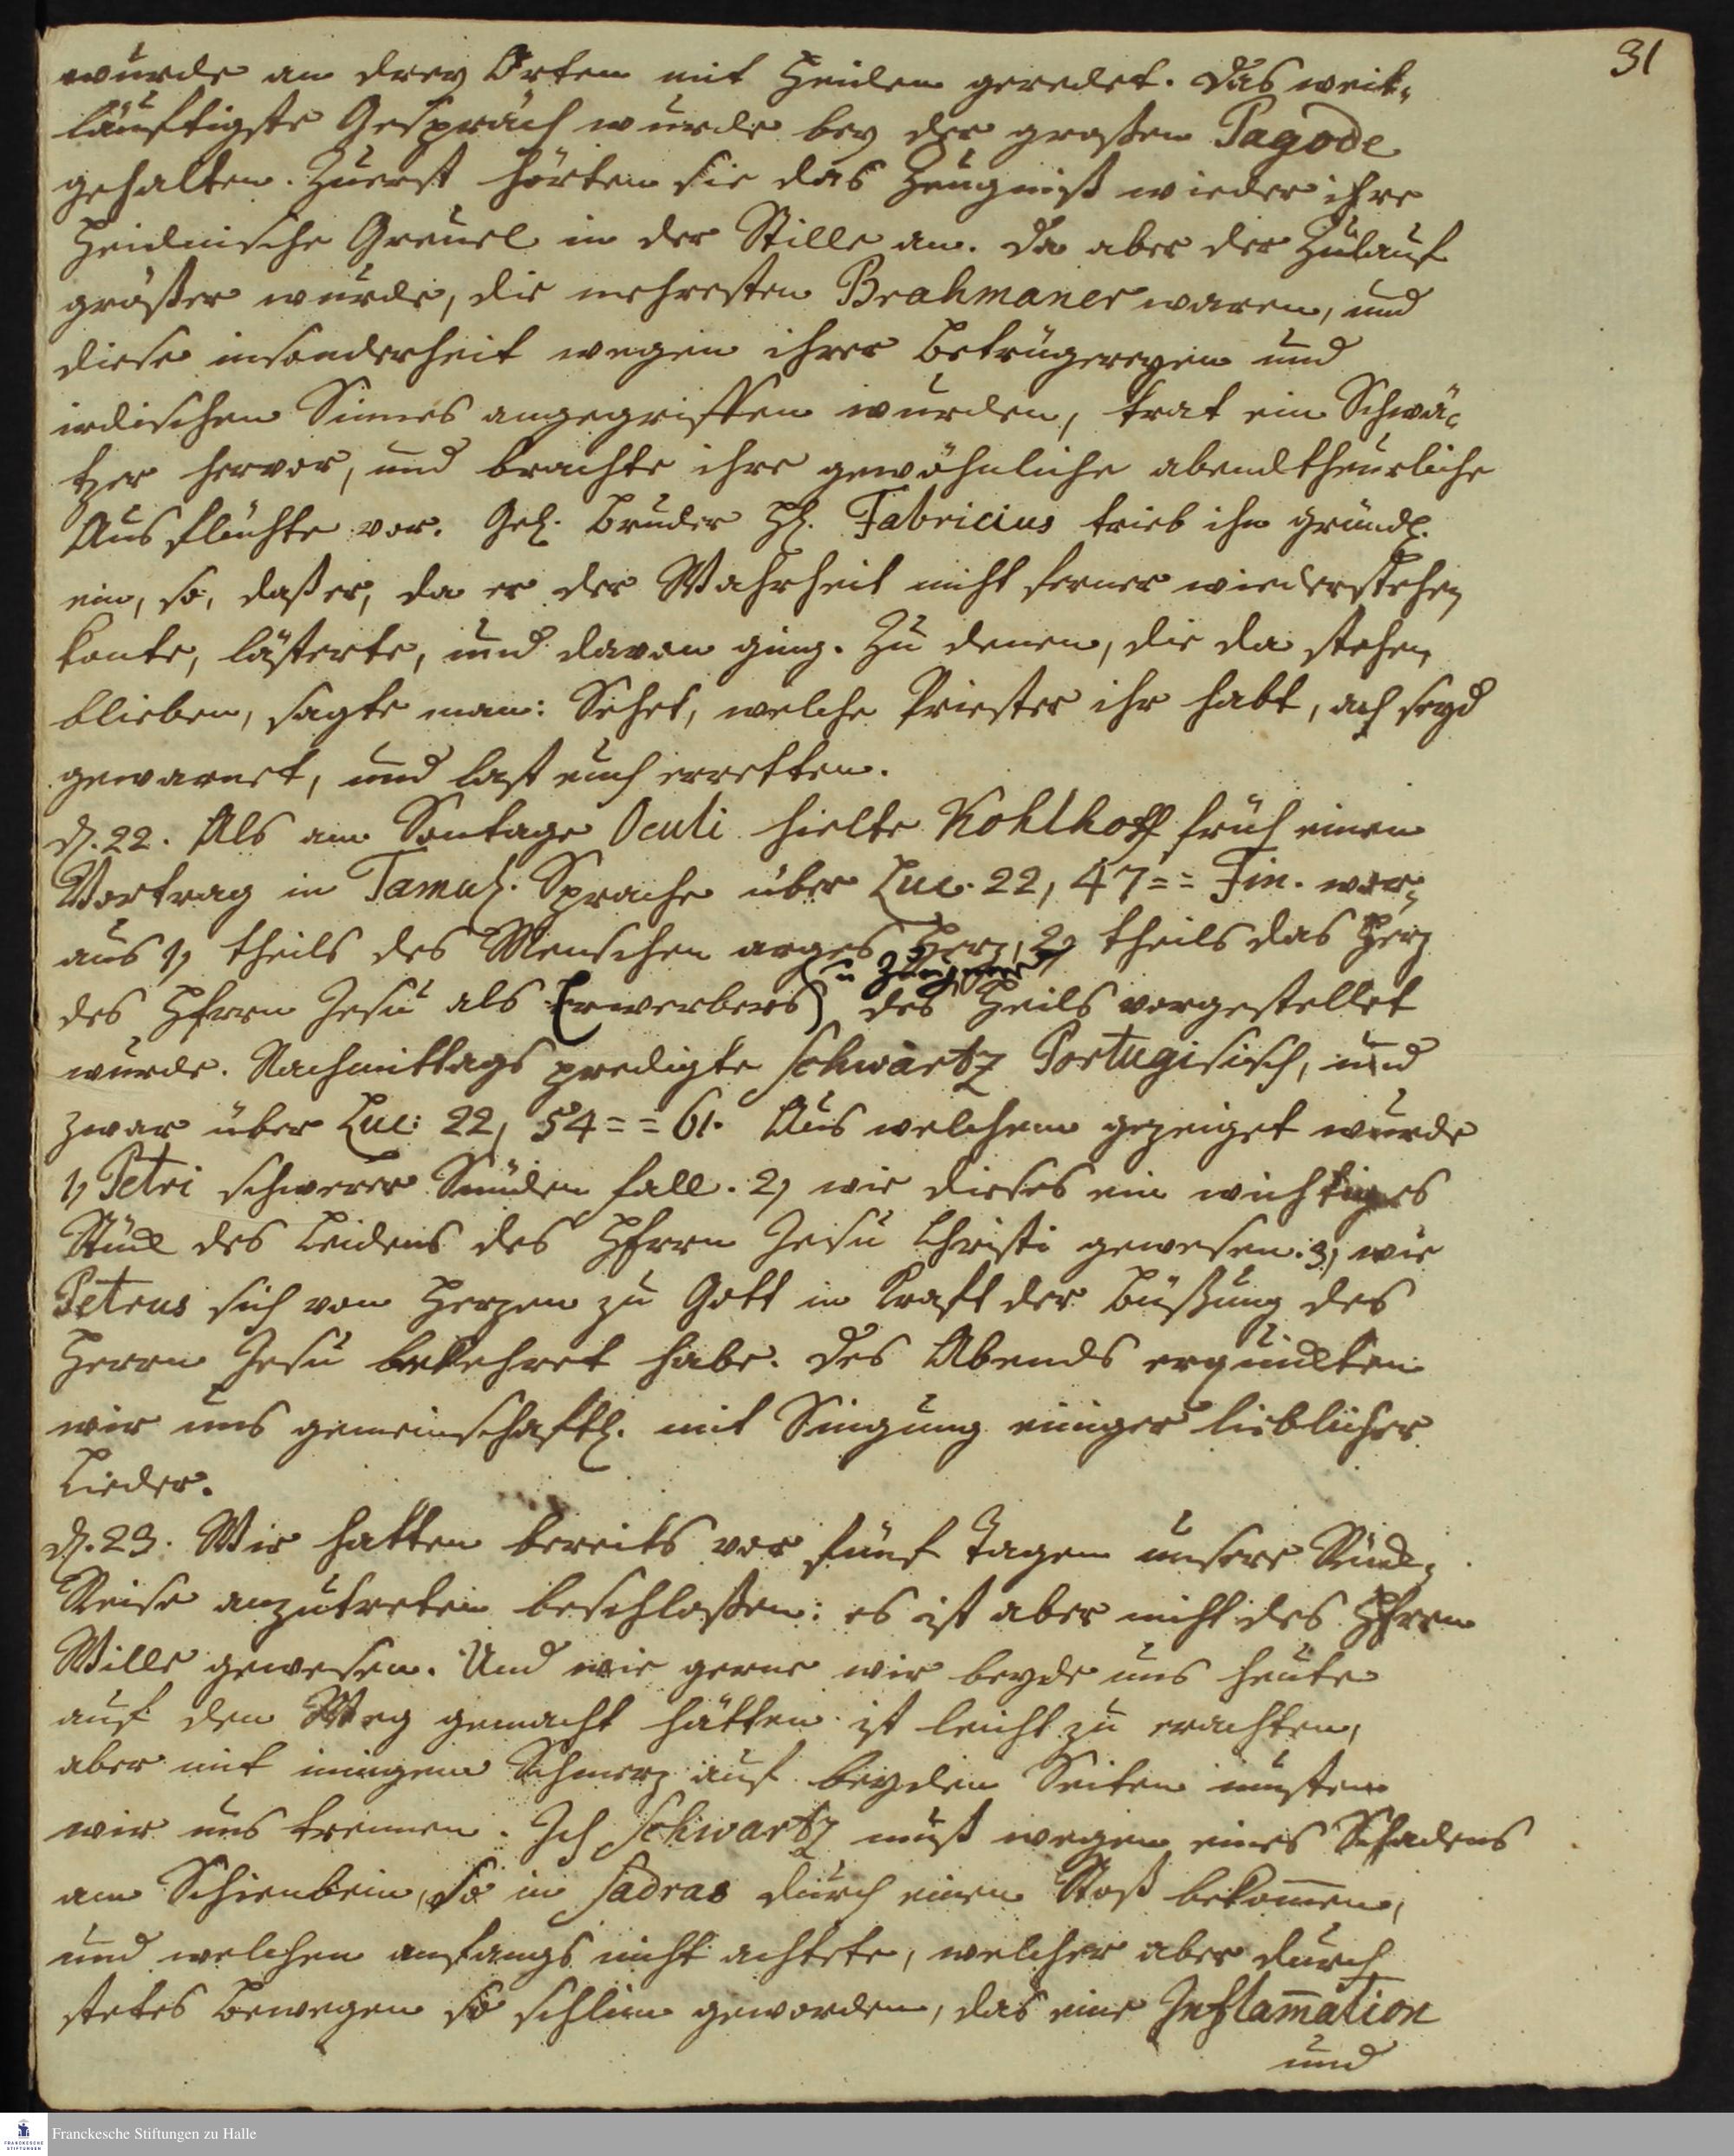 31
wurde an drey Orten mit Heiden geredet. Das weit-
läuftigste Gespräch wurde bey der großen Pagode
gehalten. Zuerst hörten sie das Zeugniß wieder ihre
Heidnische Greuel in der Stille an. Da aber der Zulauf
größer wurde, die mehresten Brahmaner waren, und
diese insonderheit wegen ihrer Betrügereyen und
irdischen Sinnes angegriffen wurden, trat ein Schwä-
tzer hervor, und brachte ihre gewöhnliche abendtheurliche
Ausflüchte vor. Gel. Bruder H. Fabricius trieb ihn gründl.
ein, so, daß er, da er der Wahrheit nicht ferner wiederstehen
konte, lästerte, und davon ging. Zu denen, die da stehen
blieben, sagte man: Sehet, welche Priester ihr habt, ach seyd
gewarnet, und last euch erretten.
d. 22. Als am Sontage Oculi hielte Kohlhoff früh einen
Vortrag in Tamul. Sprache über Luc. 22, 47 == Fin. wor-
aus 1, theils des Menschen arges Herz, 2, theils das Herz
des HErrn Jesu als Erwerbers des Heils vorgestellet
wurde. Nachmittags predigte Schwartz Portugisisch, und
zwar über Luc: 22, 54 == 61. Aus welchem gezeiget wurde
1, Petri schwerer Sünden fall. 2, wie dieses ein wichtiges
Stück des Leidens des HErrn Jesu Christi gewesen. 3, wie
Petrus sich von Herzen zu Gott in Kraft der Büßung des
Herrn Jesu bekehret habe. Des Abends erquickten
wir uns gemeinschaftl. mit Singung einiger lieblicher
Lieder.
d. 23. Wir hatten bereits vor fünf Tagen unsere Rück-
Reise anzutreten beschloßen: es ist aber nicht des HErrn
Wille gewesen. Und wie gerne wir beyde uns heute
auf den Weg gemacht hätten ist leicht zu erachten,
aber mit innigem Schmerz auf beyden Seiten musten
wir uns trennen. Ich Schwartz muß wegen eines Schadens
am Schienbein, so in Sadras durch einen Stoß bekommen,
und welchen anfangs nicht achtete, welcher aber durch
stetes Bewegen so schlim geworden, das eine Inflam̅ation
und
Franckesche Stiftungen zu Halle